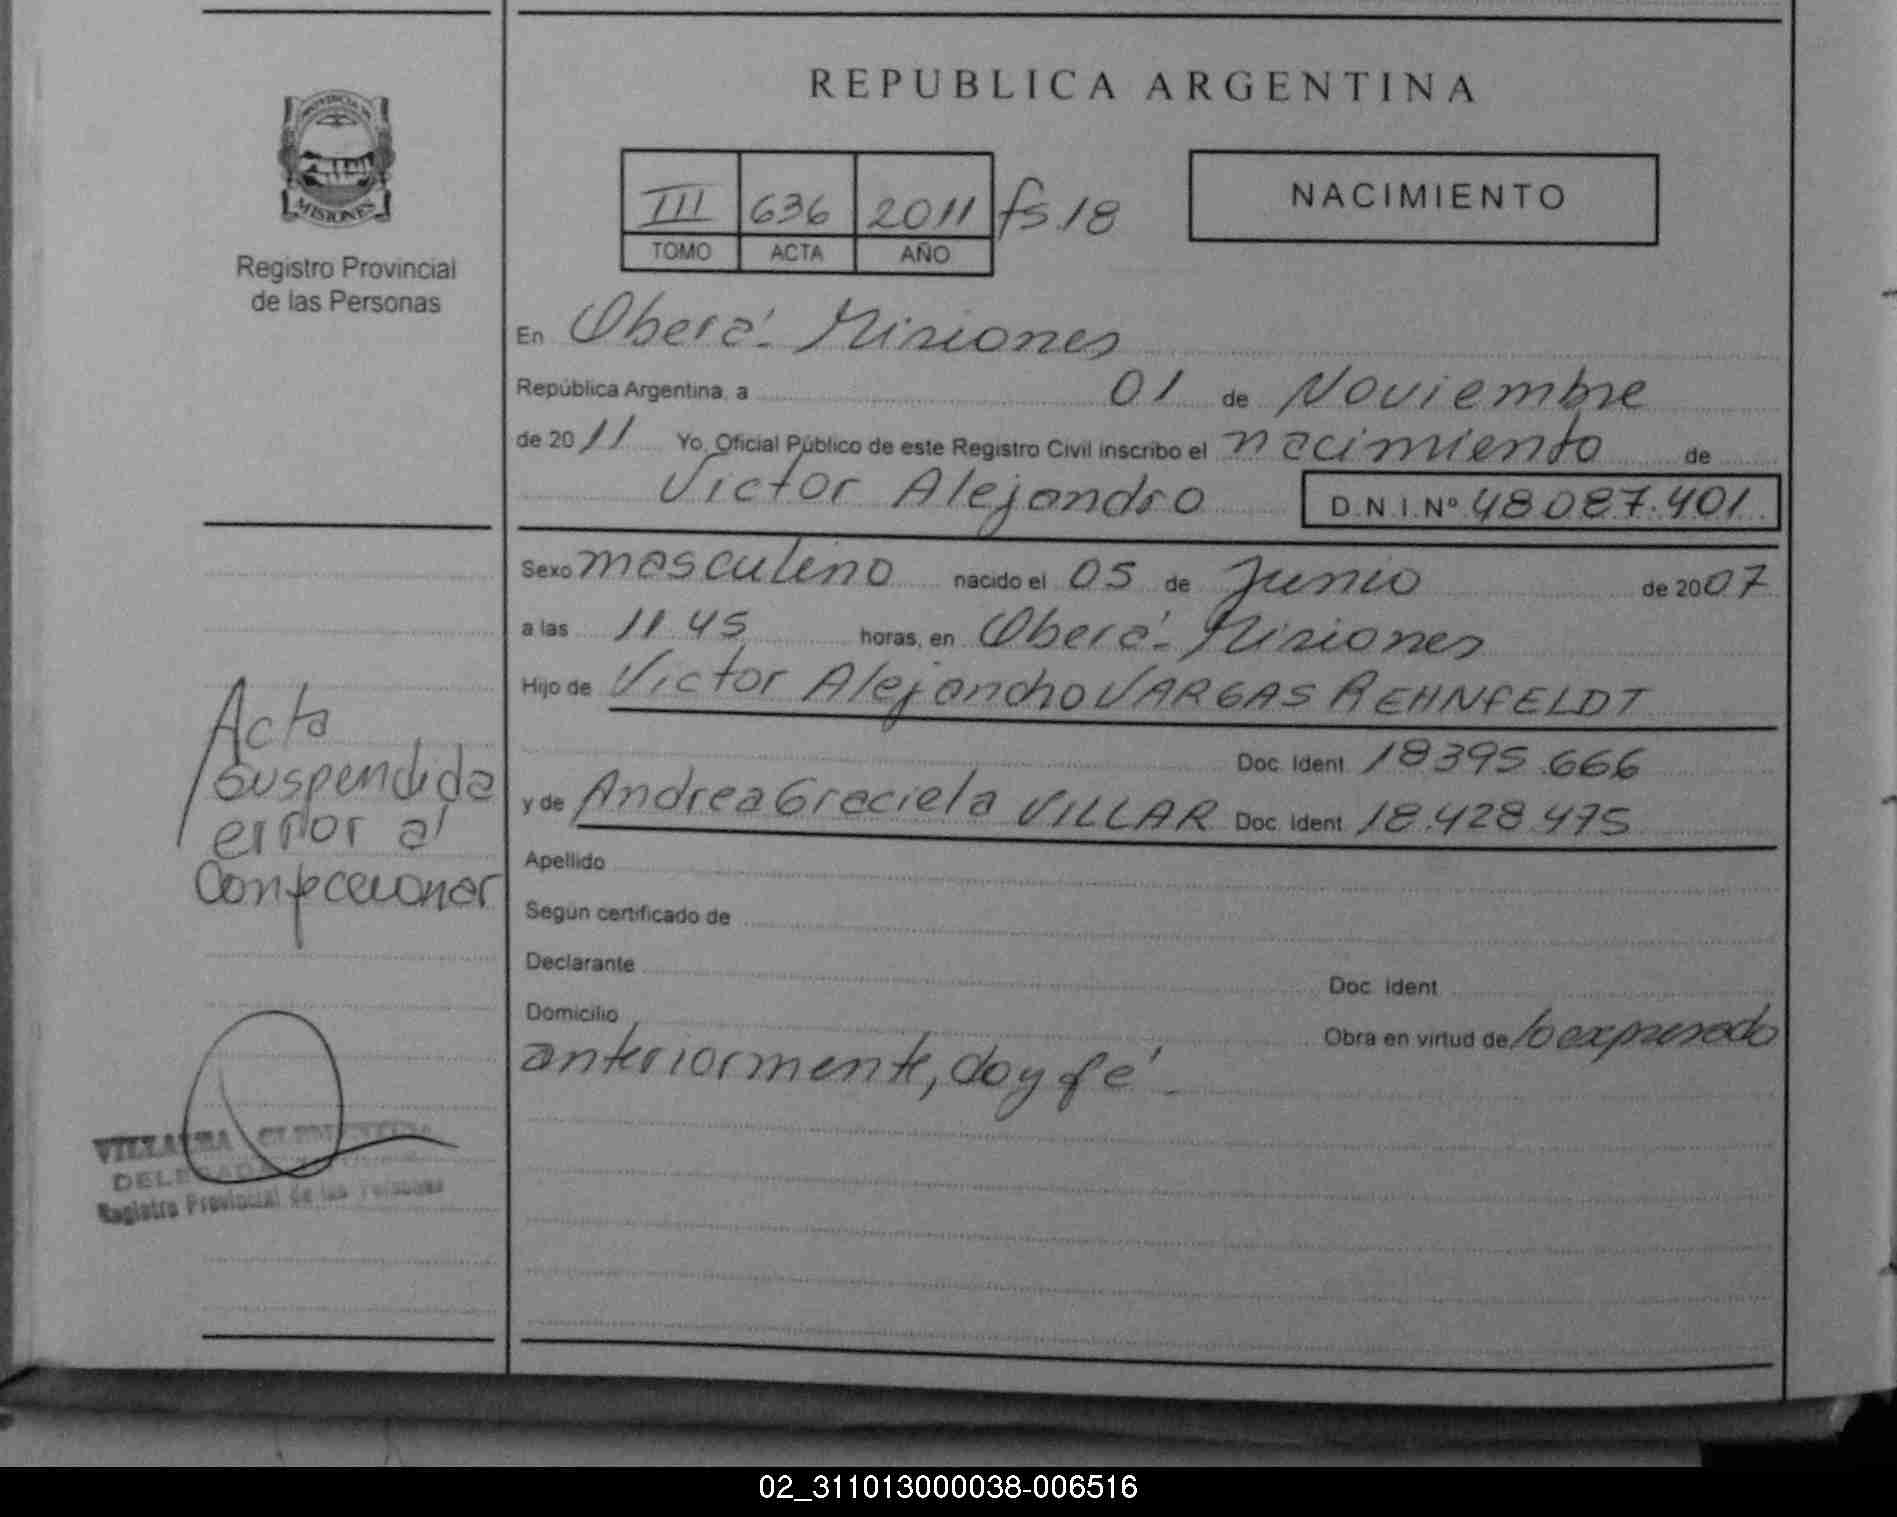 PROVINCIA DE
MISIONES
Registro Provincial
de las Personas
REPUBLICA ARGENTINA
III 636 2011 fs.18
TOMO ACTA AÑO
NACIMIENTO
En Oberá - Misiones
República Argentina, a 01 de Noviembre
de 2011 Yo, Oficial Público de este Registro Civil inscribo el nacimiento de
Victor Alejandro D.N.I. Nº 48.087.401
Sexo masculino nacido el 05 de Junio de 2007
a las 11.45 horas, en Oberá - Misiones
Hijo de Victor Alejandro VARGAS REHNFELDT
Doc. Ident. 18395.666
y de Andrea Graciela VILLAR Doc. Ident. 18.428.475
Apellido
Según certificado de
Declarante
Doc. Ident.
Domicilio
Obra en virtud de lo expresado
anteriormente, doy fé -
Acta
suspendida
error al
Confeccionar
DELEGADA
Registro Provincial de las Personas
02_311013000038-006516